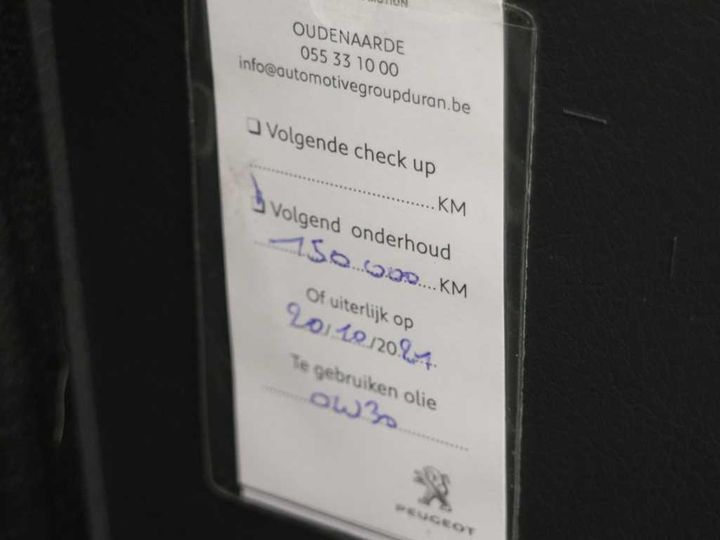 OUDENAARDE
055 33 10 00
info@automotivegroupduran.be
Volgende check up
KM
Volgend onderhoud
150.000 KM
Of uiterlijk op
Te gebruiken olie
0W30
PEUGEOT